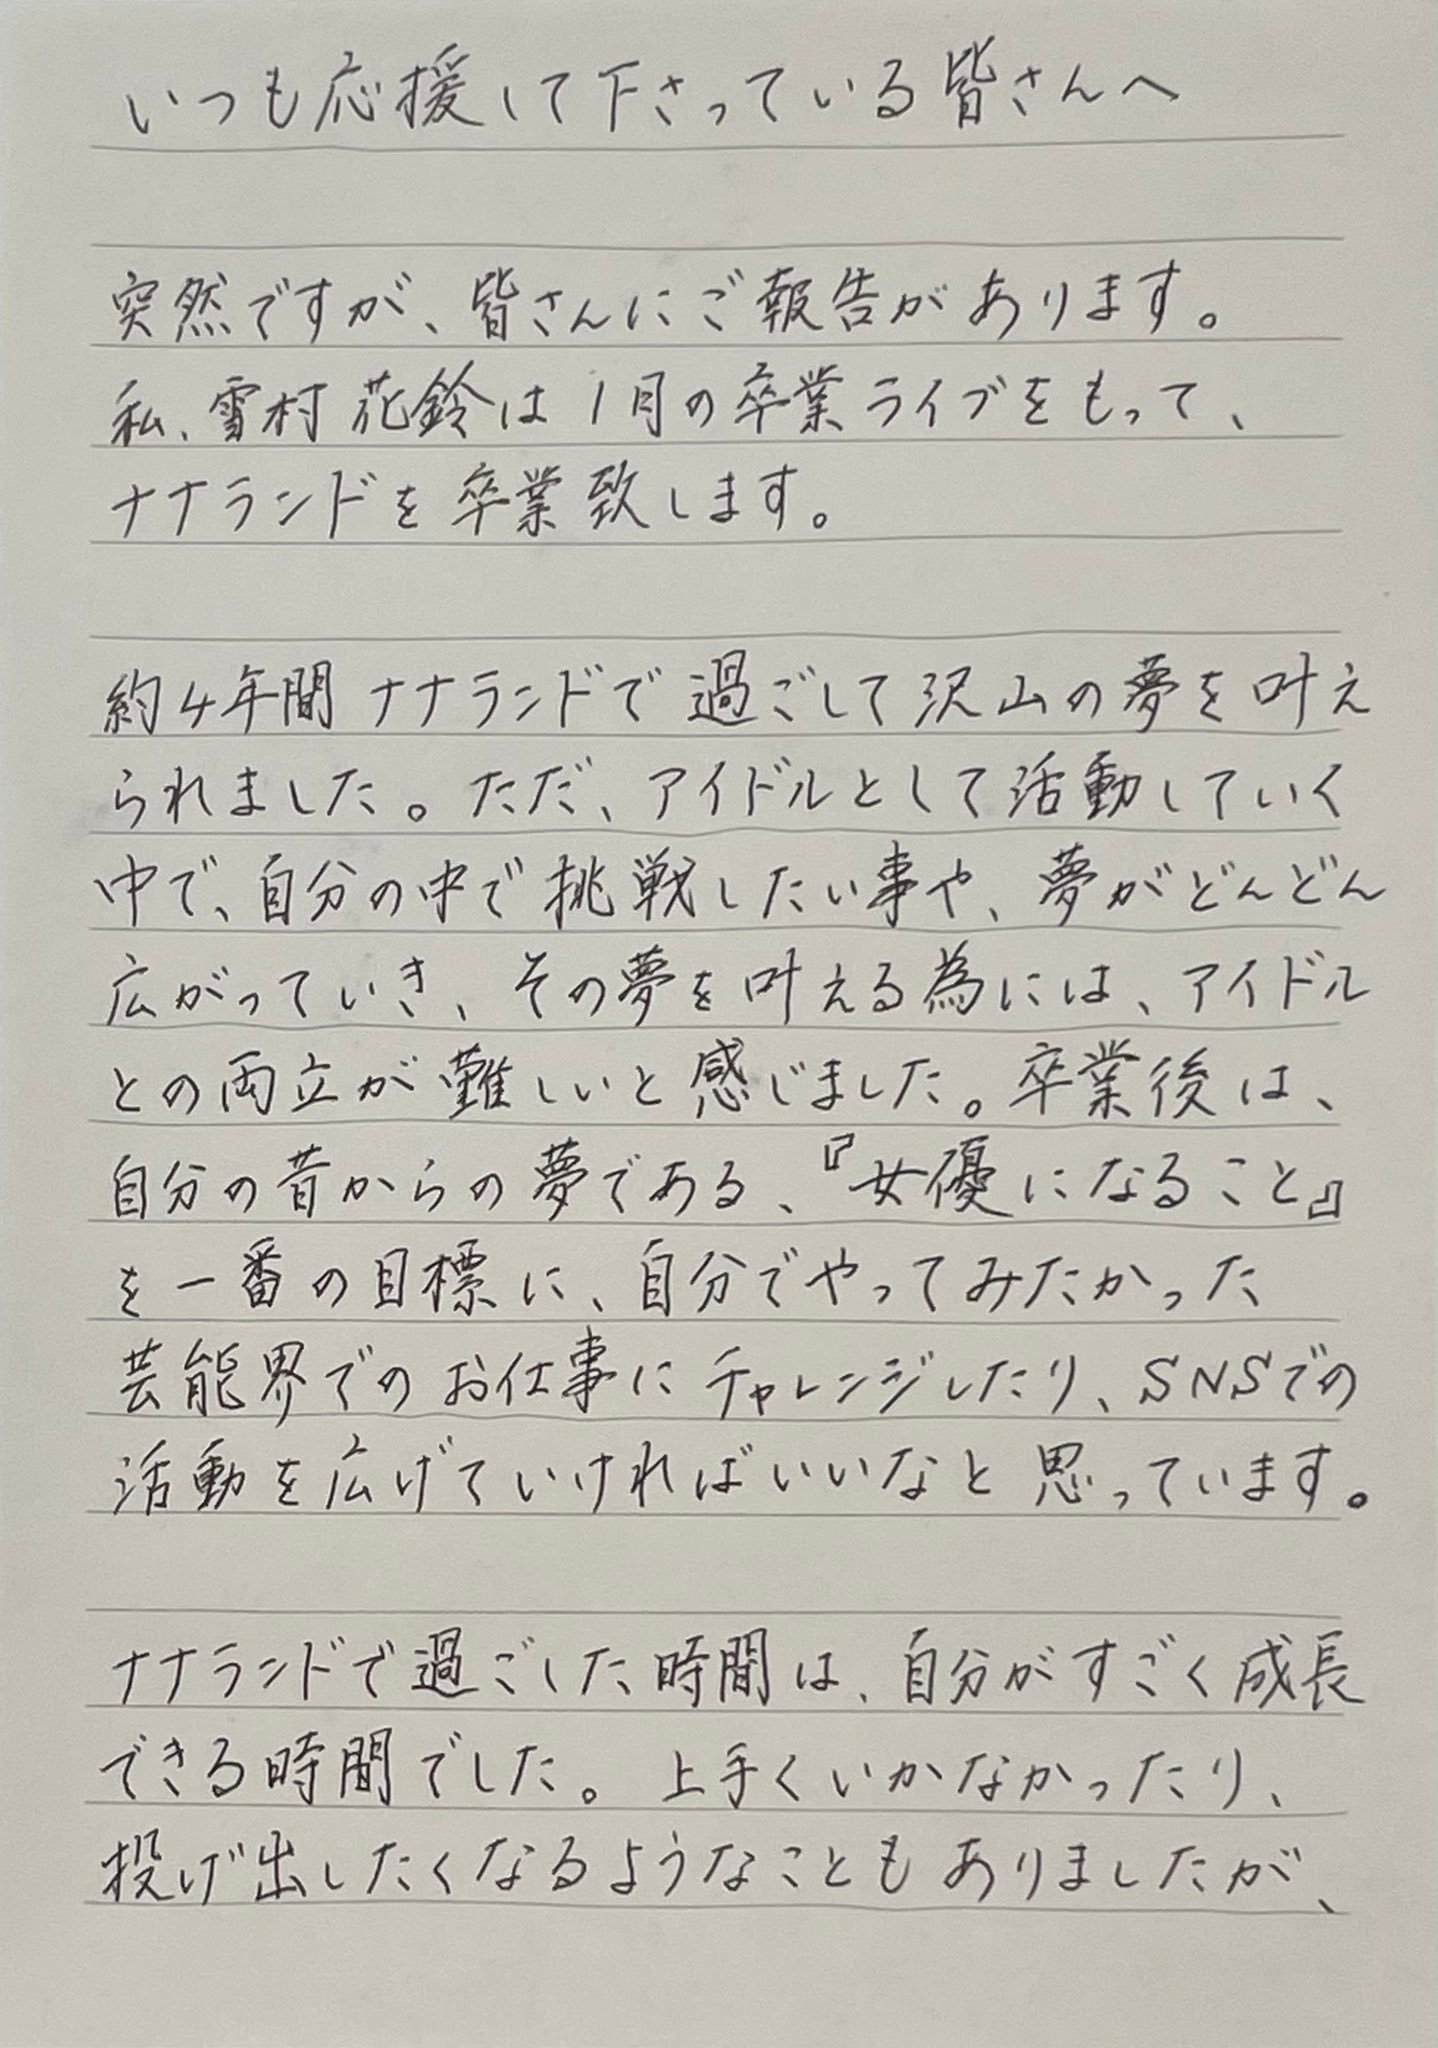 いつも応援して下さっている皆さんへ
突然ですが、皆さんにご報告があります。
私、雪村花鈴は1月の卒業ライブをもって、
ナナランドを卒業致します。
約4年間ナナランドで過ごして沢山の夢を叶え
られました。ただ、アイドルとして活動していく
中で、自分の中で挑戦したい事や、夢がどんどん
広がっていき、その夢を叶える為には、アイドル
との両立が難しいと感じました。卒業後は、
自分の昔からの夢である、『女優になること』
を一番の目標に、自分でやってみたかった
芸能界でのお仕事にチャレンジしたり、SNSでの
活動を広げていければいいなと思っています。
ナナランドで過ごした時間は、自分がすごく成長
できる時間でした。上手くいかなかったり、
投げ出したくなるようなこともありましたが、